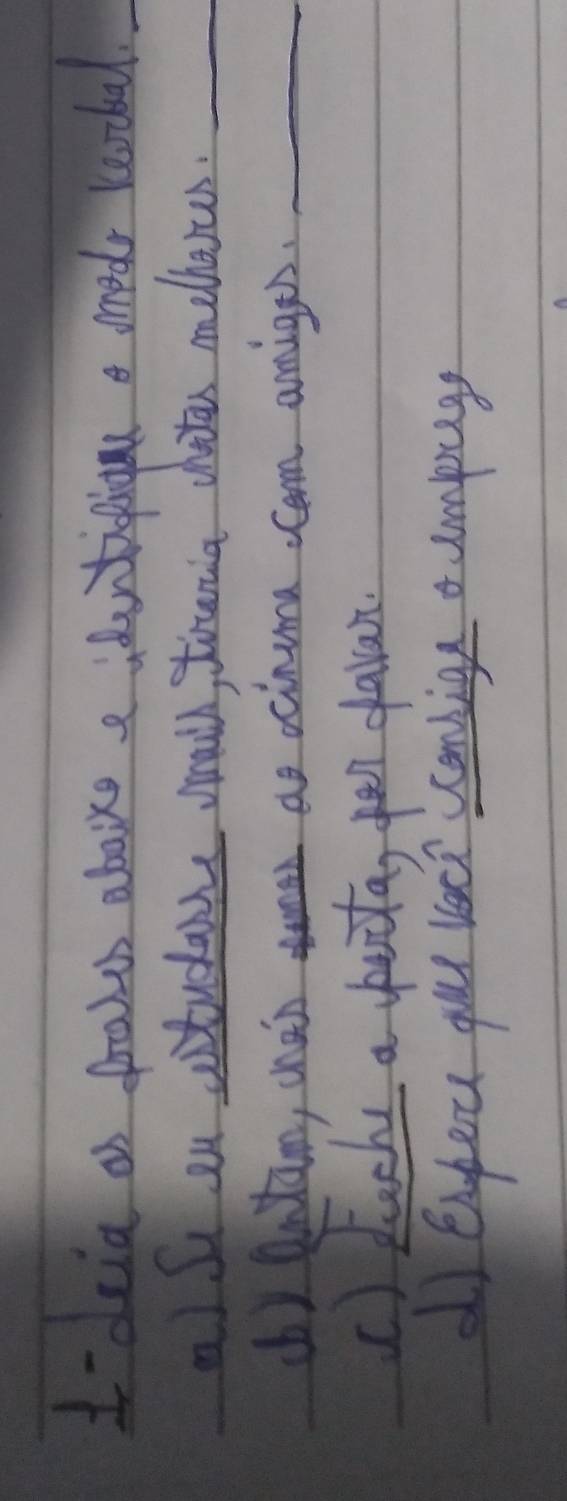 1- Leia as frases abaixo e identifique o modo verbal.
a) Se eu estudasse mais, tiraria notas melhores.
b) Ontem, nós fomos ao cinema com amigos.
c) Feche a porta, por favor.
d) Espero que você consiga o emprego